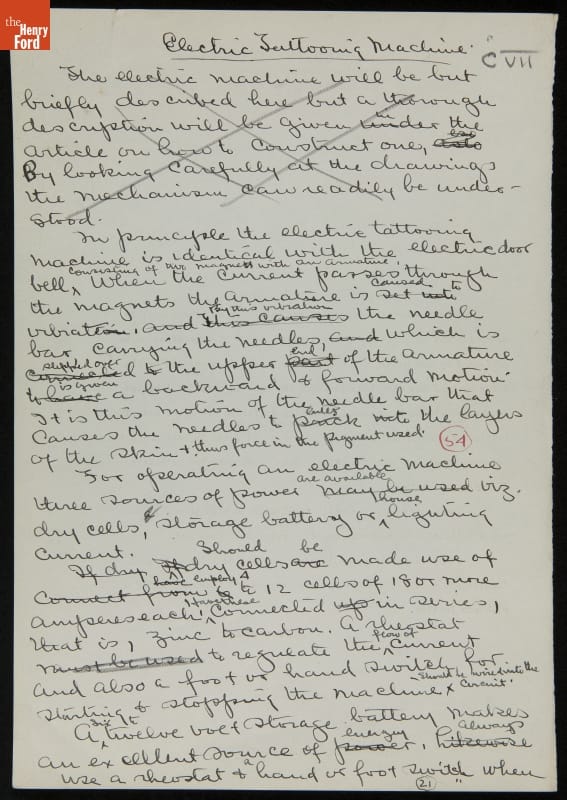 the
Henry
Ford
Electric Tattooing Machine.
C VII
The electric machine will be but
briefly described here but a thorough
description will be given under in the
article on how to construct one, also
By looking carefully at the drawings
the mechanism can readily be under-
stood.
In principle the electric tattooing
machine is identical with the electric door
consisting of two magnets with an armature.
bell, When the current passes through
caused to
the magnets the armature is set into
by this vibration
vibration, and this causes the needle
bar carrying the needles, and which is
slipped over end
connected to the upper part of the armature
is given
to have a backward & forward motion.
It is this motion of the needle bar that
enter
causes the needles to prick into the layers
of the skin & thus force in the pigment used.
54
For operating an electric machine
are available
three sources of power may be used viz.
house
dry cells, storage battery or lighting
current.
Should be
If dry cells are made use of
have employ 4
connect from 6 to 12 cells of 18 or more
Have these
amperes each, connected up in series,
that is, zinc to carbon. A rheostat
flow of
must be used to regulate the current
and also a foot or hand switch for
should be wired into the
starting & stopping the machine circuit.
six to
A twelve volt storage battery makes
energy always
an excellent source of power, likewise
use a rheostat & a hand or foot switch when
21